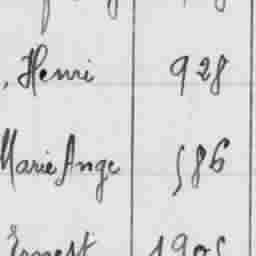 , Henri 928
Marie Ange 586
Ernest 1905